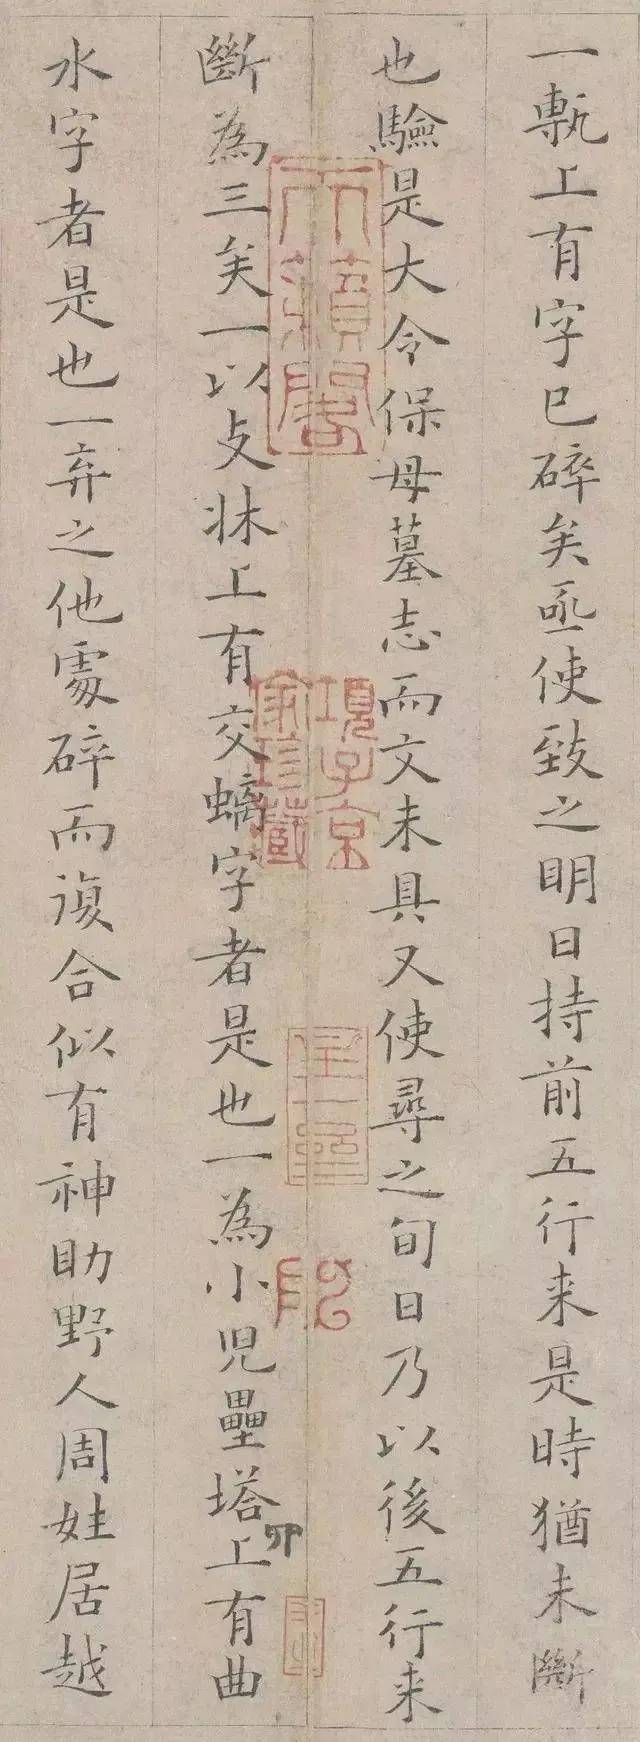 一甎上有字已碎矣亟使致之明日持前五行来是時猶未斷
也驗是大令保母墓志而文未具又使尋之旬日乃以後五行来
斷為三矣一以支牀上有交螭字者是也一為小児壘塔上有曲
水字者是也一弃之他處碎而復合似有神助野人周姓居越
天籟閣
項子京
家珍藏